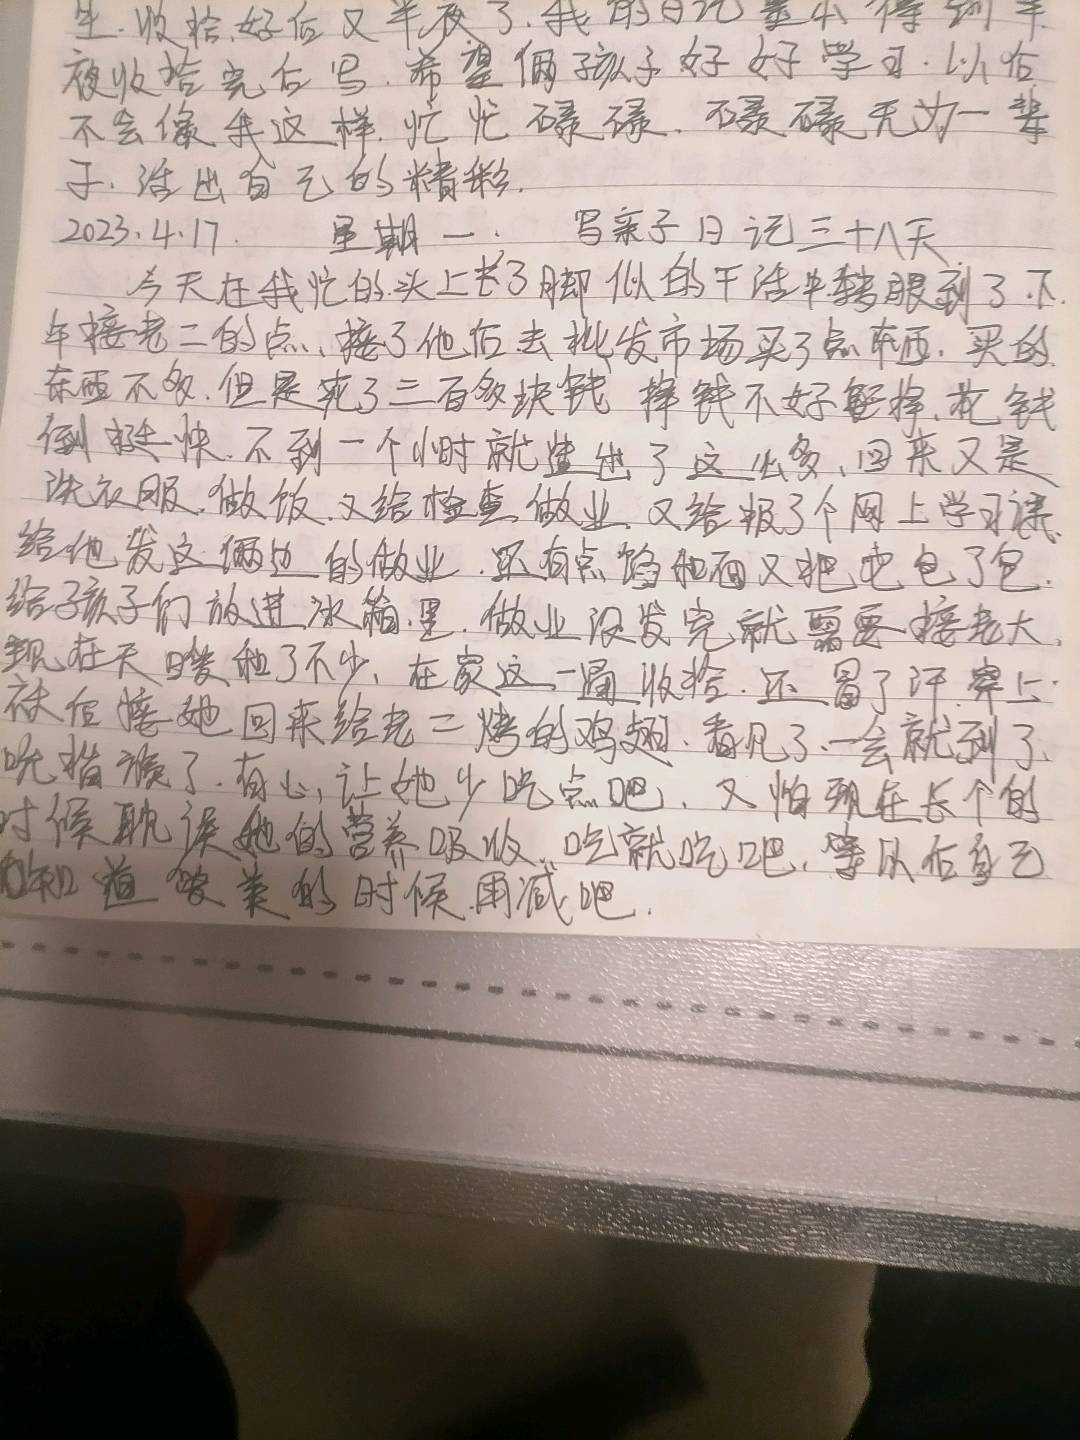 生.收拾好后又半夜了.我的日记基本得到半
夜收拾完后写.希望俩孩子好好学习.以后
不会像我这样.忙忙碌碌.碌碌无为一辈
子.活出自己的精彩.
2023.4.17. 星期一. 写亲子日记三十八天
今天在我忙的头上长了脚似的干活中转眼到了.下
午接老二的点、接了他后去批发市场买了点东西.买的
东西不多.但是花了三百多块钱 挣钱不好挣.花钱
倒挺快.不到一个小时就造出了这么多、回来又是
洗衣服.做饭.又给检查做业.又给报了个网上学习课.
给他发这俩边的做业.还有点馅和面又把它包了包.
给孩子们放进冰箱里.做业没发完就需要接老大.
现在天暖和了不少、在家这一通收拾.还冒了汗.晚上
接她回来给老二烤的鸡翅.看见了.一会就到了.
吮指了.有心让她少吃点吧.又怕现在长个的
时候耽误她的营养吸收.吃就吃吧.等以后自己
知道爱美的时候.再减吧.